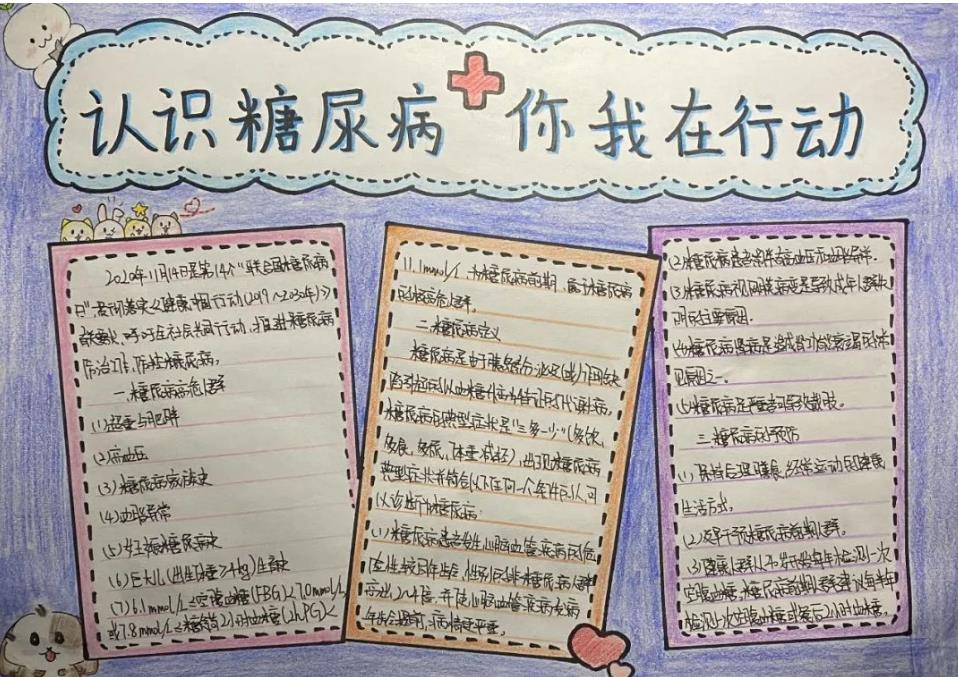 认识糖尿病 你我在行动
2020年11月14日是第14个“联合国糖尿病
日”，为切实落实《健康中国行动(2019～2030年)》
倡议，呼吁全社会共同行动，推进糖尿病
防治工作，防控糖尿病。
一.糖尿病高危人群
(1)超重与肥胖
(2)高血压
(3)糖尿病家族史
(4)血脂异常
(5)妊娠糖尿病史
(6)巨大儿(出生体重≥4kg)生育史
(7)6.1mmol/L≤空腹血糖(FBG)<7.0mmol/L
或7.8mmol/L≤糖负荷2小时血糖(2hPG)<
11.1mmol/L 为糖尿病前期，属于糖尿病
的极高危人群。
二.糖尿病定义
糖尿病是由于胰岛素分泌及(或)作用缺
陷引起的以血糖升高为特征的代谢病。
糖尿病的典型症状是“三多一少”(多饮、
多食、多尿、体重减轻)，出现糖尿病
典型症状并符合以下任何一个条件的人可
以诊断为糖尿病：
(1)糖尿病患者发生心脑血管疾病的危
险性较同年龄、性别的非糖尿病人群
高出2～4倍，并使心脑血管疾病发病
年龄提前，病情更严重。
(2)糖尿病患者常伴有高血压和血脂异常。
(3)糖尿病视网膜病变是导致成年人群失
明的主要原因。
(4)糖尿病肾病是造成肾功能衰竭的常
见原因之一。
(5)糖尿病足严重者可导致截肢。
三.糖尿病的预防
(1)保持合理膳食、经常运动的健康
生活方式。
(2)及早干预糖尿病前期人群。
(3)健康人群从40岁开始每年检测一次
空腹血糖，糖尿病前期人群建议每半年
检测一次空腹血糖或餐后2小时血糖。